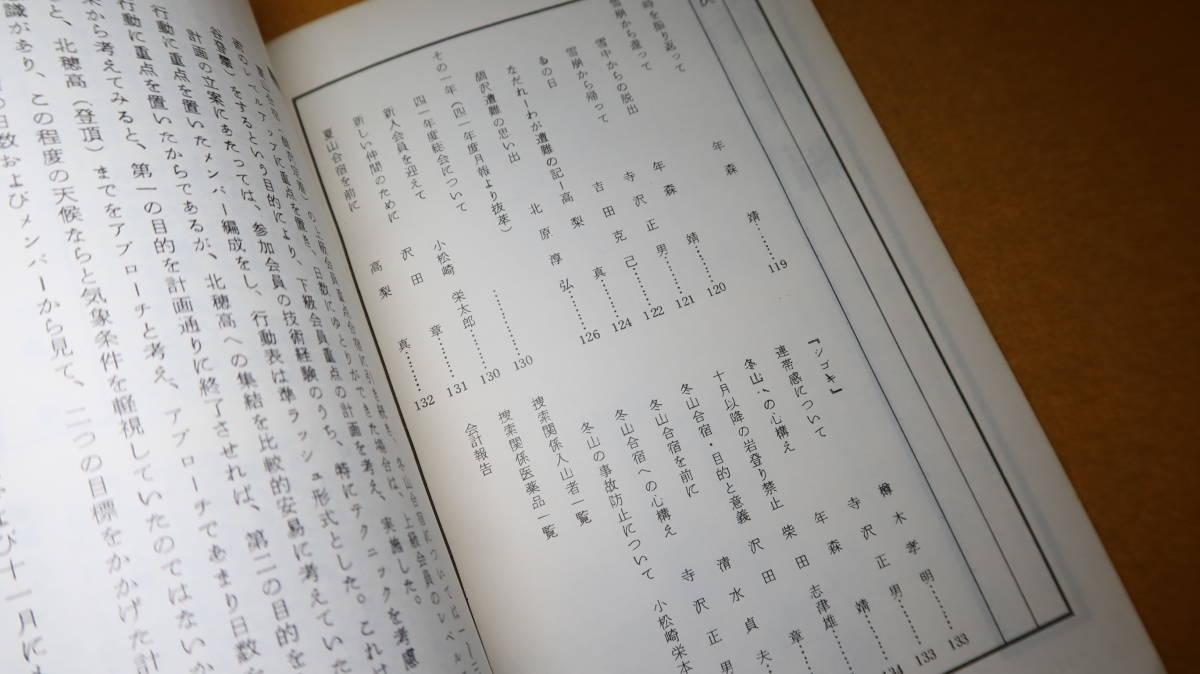 次
時を振り返って 年森 靖……119
雪崩から還って 年森 靖……120
雪中からの脱出 寺沢正男……121
雪崩から帰って 吉田克己……122
あの日 高梨 真……124
なだれーわが遭難の記ー 北原淳弘……126
涸沢遭難の思い出
その一年(四一年度月報より抜萃)……130
四一年度総会について 小松崎栄太郎……130
新人会員を迎えて 沢田 章……131
新しい仲間のために 高梨 真……132
夏山合宿を前に
『シゴキ』 樽木孝明……133
連帯感について 寺沢正男……133
冬山への心構え 年森 靖……134
十月以降の岩登り禁止 柴田志津雄
冬山合宿・目的と意義 沢田 章
冬山合宿を前に 清水貞夫
冬山合宿への心構え 寺沢正男
冬山の事故防止について 小松崎栄
捜索関係入山者一覧
捜索関係医薬品一覧
会計報告
のレベルアップに重点を置き、日数にゆとりができた場合は、上級会員のレベル
谷登攀)をするという目的により、下級会員重点の計画を考え、実施した。
計画の立案にあたっては、参加会員の技術経験のうち、特にテクニックを考慮
行動に重点を置いたメンバー編成をし、行動表は準ラッシュ形式とした。これは
行動に重点を置いたからであるが、北穂高への集結を比較的安易に考えていた
から考えてみると、第一の目的を計画通りに終了させれば、第二の目的を
と、北穂高(登頂)までをアプローチと考え、アプローチであまり日数
識があり、この程度の天候ならと気象条件を軽視していたのではないか
日数およびメンバーから見て、二つの目標をかかげた計
よび十一月に